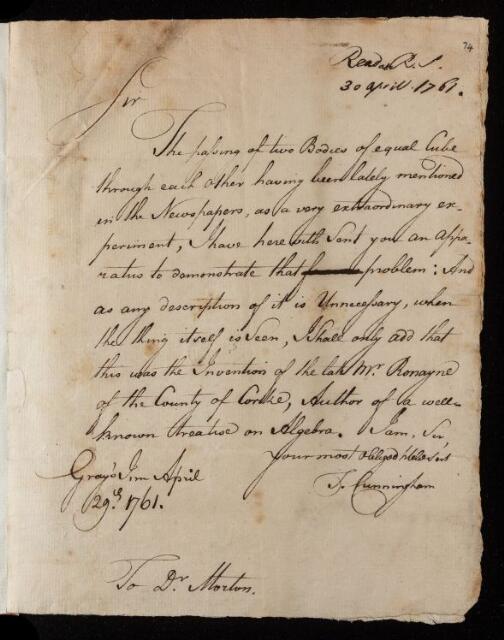 74
Read at R.S.
30 april 1761.
Sir
The passing of two Bodies of equal Cube
through each other having been lately mentioned
in the Newspapers, as a very extraordinary ex-
periment, I have here with Sent you an appa-
ratus to demonstrate that problem: And
as any description of it is Unnecessary, when
the thing itself is Seen, I Shall only add that
this was the Invention of the late Mr. Ronayne
of the County of Corke, Author of a well-
known treatise on Algebra. I am, Sir,
your most Obliged
Gray's Inn April
T. Cunningham
29th 1761.
To Dr. Morton.